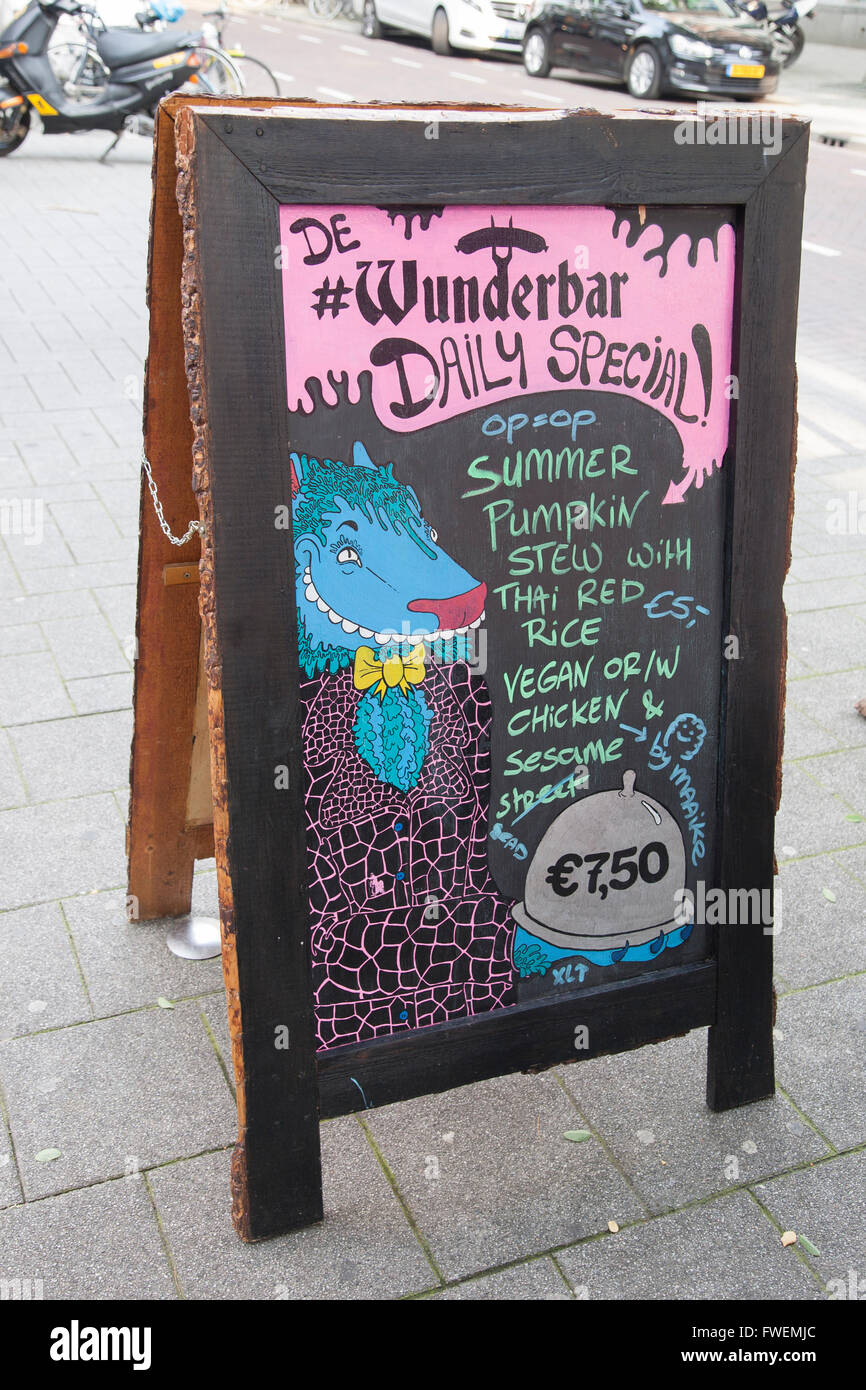 DE
#Wunderbar
DAILY SPECIAL!
OP=OP
SUMMER
PUMPKIN
STEW WITH
THAI RED
RICE
€5,-
VEGAN OR/W
CHICKEN &
SESAME
STREET
by MAAIKE
€7,50
XLT
a alamy stock photo
FWEMJC
www.alamy.com